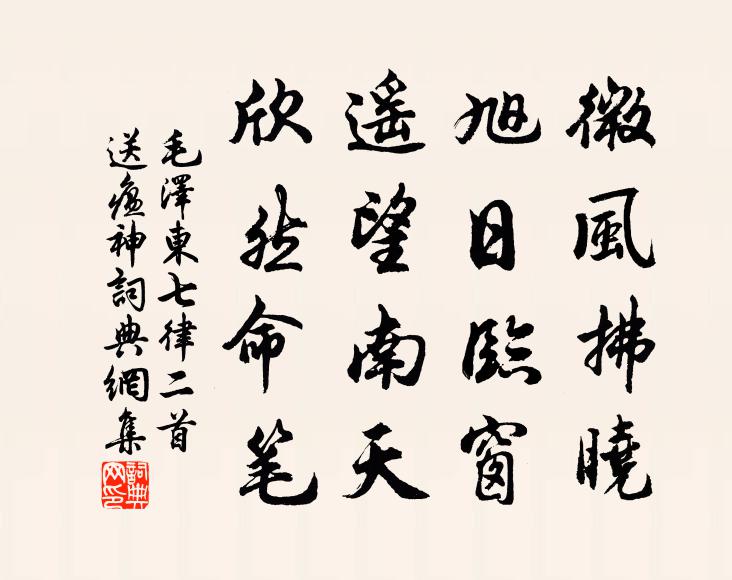 微風拂曉
旭日臨窗
遥望南天
欣然命笔
毛澤東七律二首
送瘟神詞典網集
詞典网印